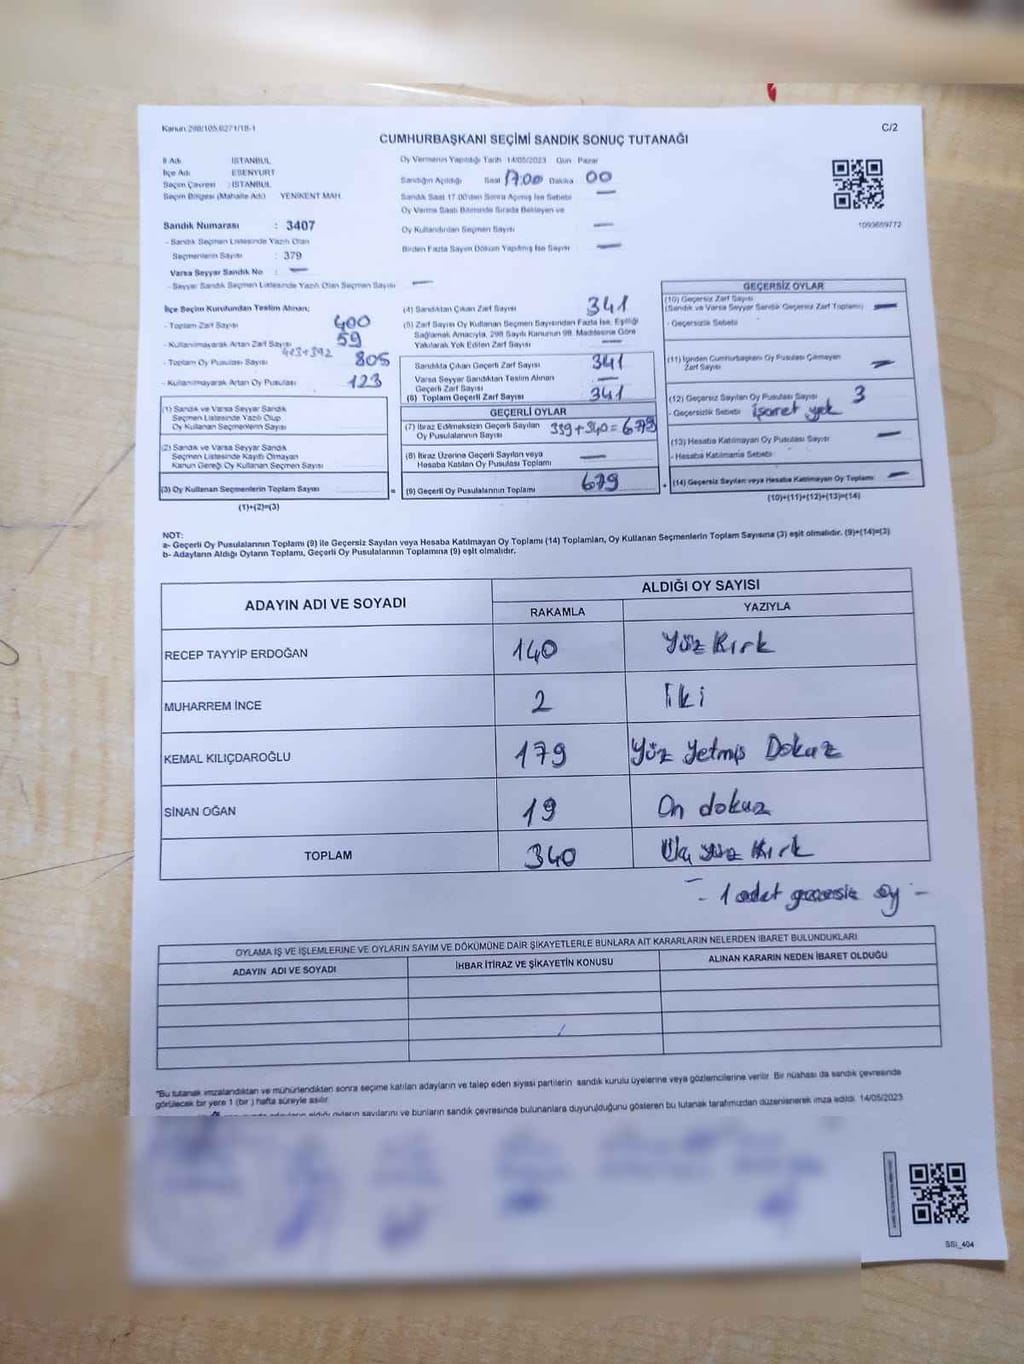 Kanun:298/105,6271/18-1
C/2
CUMHURBAŞKANI SEÇİMİ SANDIK SONUÇ TUTANAĞI
İl Adı : İSTANBUL
İlçe Adı : ESENYURT
Seçim Çevresi : İSTANBUL
Seçim Bölgesi (Mahalle Adı) : YENİKENT MAH.
Sandık Numarası : 3407
- Sandık Seçmen Listesinde Yazılı Olan
Seçmenlerin Sayısı : 379
Varsa Seyyar Sandık No : —
- Seyyar Sandık Seçmen Listesinde Yazılı Olan Seçmen Sayısı —
Oy Vermenin Yapıldığı Tarih 14/05/2023 Gün Pazar
Sandığın Açıldığı Saat 17:00 Dakika 00
Sandık Saat 17.00'den Sonra Açılmış İse Sebebi —
Oy Verme Saati Bitiminde Sırada Bekleyen ve
Oy Kullandırılan Seçmen Sayısı —
Birden Fazla Sayım Döküm Yapılmış İse Sayısı —
1093659772
İlçe Seçim Kurulundan Teslim Alınan;
- Toplam Zarf Sayısı 400
- Kullanılmayarak Artan Zarf Sayısı 59
413+392
- Toplam Oy Pusulası Sayısı 805
- Kullanılmayarak Artan Oy Pusulası 123
(1) Sandık ve Varsa Seyyar Sandık
Seçmen Listesinde Yazılı Olup
Oy Kullanan Seçmenlerin Sayısı
(2) Sandık ve Varsa Seyyar Sandık
Seçmen Listesinde Kayıtlı Olmayan
Kanun Gereği Oy Kullanan Seçmen Sayısı
(3) Oy Kullanan Seçmenlerin Toplam Sayısı
(1)+(2)=(3)
(4) Sandıktan Çıkan Zarf Sayısı 341
(5) Zarf Sayısı Oy Kullanan Seçmen Sayısından Fazla İse, Eşitliği
Sağlamak Amacıyla, 298 Sayılı Kanunun 98. Maddesine Göre
Yakılarak Yok Edilen Zarf Sayısı —
Sandıkta Çıkan Geçerli Zarf Sayısı 341
Varsa Seyyar Sandıktan Teslim Alınan
Geçerli Zarf Sayısı —
(6) Toplam Geçerli Zarf Sayısı 341
GEÇERLİ OYLAR
(7) İtiraz Edilmeksizin Geçerli Sayılan
Oy Pusulalarının Sayısı 339+340=679
(8) İtiraz Üzerine Geçerli Sayılan veya
Hesaba Katılan Oy Pusulası Toplamı —
(9) Geçerli Oy Pusulalarının Toplamı 679
GEÇERSİZ OYLAR
(10) Geçersiz Zarf Sayısı
(Sandık ve Varsa Seyyar Sandık Geçersiz Zarf Toplamı) —
- Geçersizlik Sebebi
(11) İçinden Cumhurbaşkanı Oy Pusulası Çıkmayan
Zarf Sayısı —
(12) Geçersiz Sayılan Oy Pusulası Sayısı 3
- Geçersizlik Sebebi işaret yok
(13) Hesaba Katılmayan Oy Pusulası Sayısı —
- Hesaba Katılmama Sebebi
(14) Geçersiz Sayılan veya Hesaba Katılmayan Oy Toplamı —
(10)+(11)+(12)+(13)=(14)
NOT:
a- Geçerli Oy Pusulalarının Toplamı (9) ile Geçersiz Sayılan veya Hesaba Katılmayan Oy Toplamı (14) Toplamları, Oy Kullanan Seçmenlerin Toplam Sayısına (3) eşit olmalıdır. (9)+(14)=(3)
b- Adayların Aldığı Oyların Toplamı, Geçerli Oy Pusulalarının Toplamına (9) eşit olmalıdır.
ADAYIN ADI VE SOYADI
ALDIĞI OY SAYISI
RAKAMLA YAZIYLA
RECEP TAYYİP ERDOĞAN 140 Yüz Kırk
MUHARREM İNCE 2 İki
KEMAL KILIÇDAROĞLU 179 Yüz Yetmiş Dokuz
SİNAN OĞAN 19 On dokuz
TOPLAM 340 Üç yüz Kırk
- 1 adet geçersiz oy -
OYLAMA İŞ VE İŞLEMLERİNE VE OYLARIN SAYIM VE DÖKÜMÜNE DAİR ŞİKAYETLERLE BUNLARA AİT KARARLARIN NELERDEN İBARET BULUNDUKLARI
ADAYIN ADI VE SOYADI İHBAR İTİRAZ VE ŞİKAYETİN KONUSU ALINAN KARARIN NEDEN İBARET OLDUĞU
"Bu tutanak imzalandıktan ve mühürlendikten sonra seçime katılan adayların ve talep eden siyasi partilerin sandık kurulu üyelerine veya gözlemcilerine verilir. Bir nüshası da sandık çevresinde
görülecek bir yere 1 (bir ) hafta süreyle asılır.
adayların aldığı oyların sayılarını ve bunların sandık çevresinde bulunanlara duyurulduğunu gösteren bu tutanak tarafımızdan düzenlenerek imza edildi. 14/05/2023
SSI_404